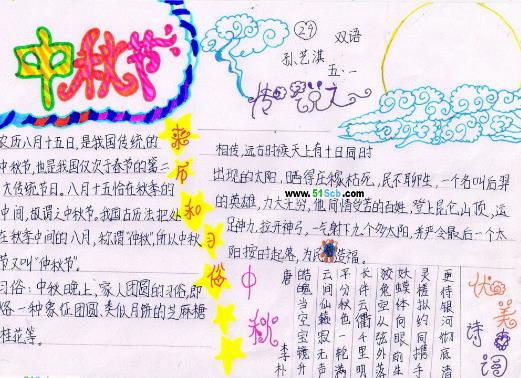 中秋节
29
双语
孙艺淇
五·一
传说之一
来历和习俗
农历八月十五日,是我国传统的
中秋节,也是我国仅次于春节的第二
大传统节日。八月十五恰在秋季的
中间,故谓之中秋节。我国古历法把处
在秋季中间的八月,称谓"仲秋",所以中秋
节又叫"仲秋节"。
习俗:中秋晚上,家人团圆的习俗,即
烙一种象征团圆、类似月饼的芝麻糖
桂花等。
相传,远古时候天上有十日同时
出现的太阳,晒得庄稼枯死,民不聊生,一个名叫后羿
www.51Scb.com
的英雄,力大无穷,他同情受苦的百姓,登上昆仑山顶,运
足神力,拉开神弓,一气射下九个多太阳,并严令最后一个太
阳按时起落,为民造福。
中秋
唐 李朴
皓魄当空宝镜升
云间仙籁寂无声
平分秋色一轮满
长伴云衢千里明
狡兔空从弦外落
妖蟆休向眼前生
灵槎拟约同携手
更待银河彻底清
优美诗词